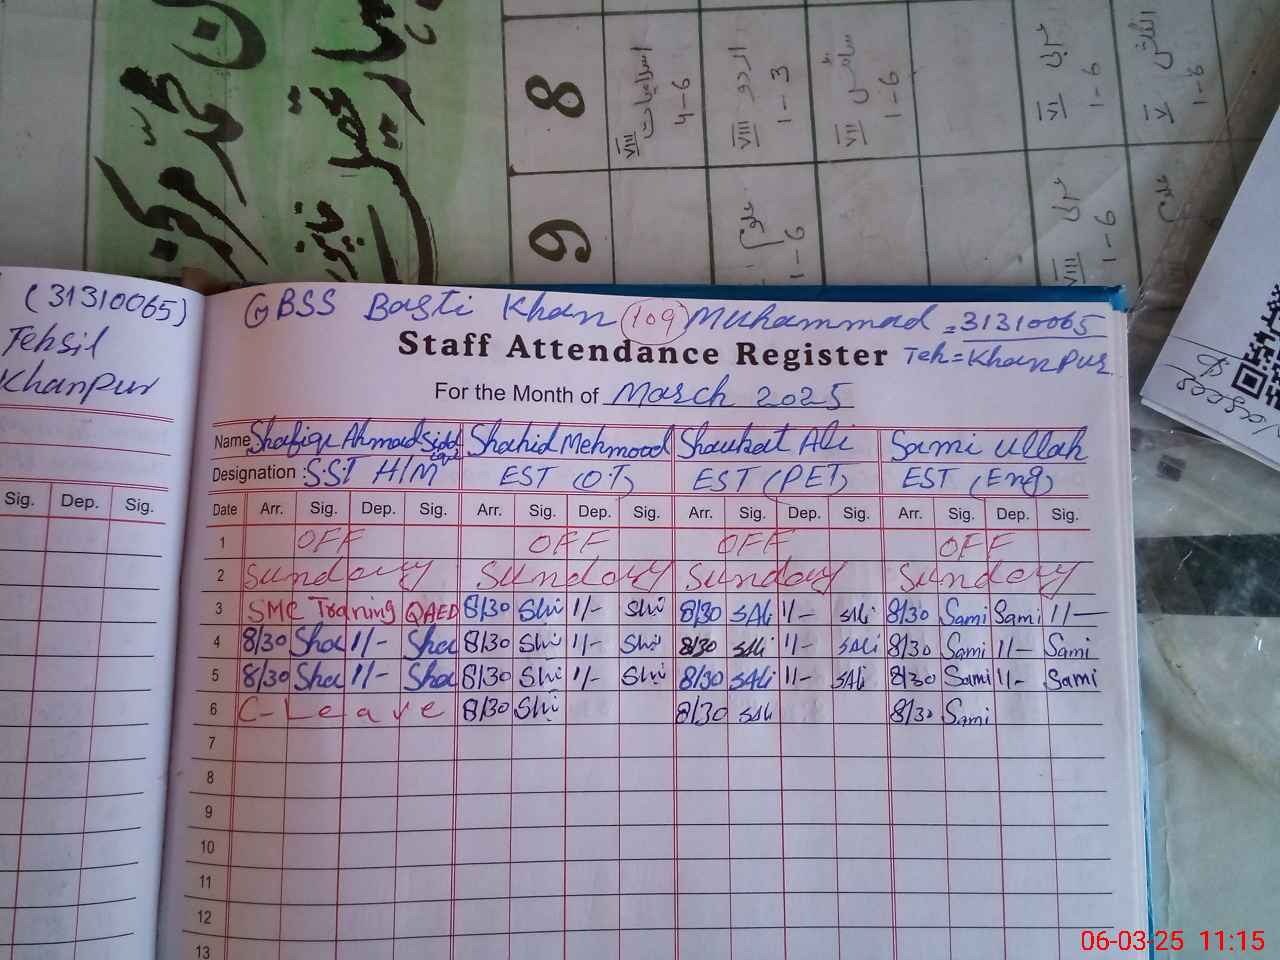 8
VIII اسلامیات 4-6
VIII اردو 1-3
VII سائنس 1-6
VI عربی 1-6
V انگلش 1-6
9
علوم 1-6
VIII عربی 1-6
(31310065)
Tehsil
Khanpur
Sig. Dep. Sig.
GBSS Basti Khan (109) Muhammad = 31310065
Staff Attendance Register Teh = Khanpur
For the Month of March 2025
Name: Shafiqu Ahmad Shahid Mehmood Shaukat Ali Sami Ullah
Designation : SST H/M EST (OT) EST (PET) EST (Eng)
Date Arr. Sig. Dep. Sig. Arr. Sig. Dep. Sig. Arr. Sig. Dep. Sig. Arr. Sig. Dep. Sig.
1 OFF OFF OFF OFF
2 Sunday Sunday Sunday Sunday
3 SMC Traning QAED 8/30 Shi 1/- Shi 8/30 SAli 1/- SAli 8/30 Sami Sami 1/-
4 8/30 Sha 1/- Sha 8/30 Shi 1/- Shi 8/30 SAli 1/- SAli 8/30 Sami 1/- Sami
5 8/30 Sha 1/- Sha 8/30 Shi 1/- Shi 8/30 SAli 1/- SAli 8/30 Sami 1/- Sami
6 C-Leave 8/30 Shi 8/30 SAli 8/30 Sami
7
8
9
10
11
12
13
06-03-25 11:15